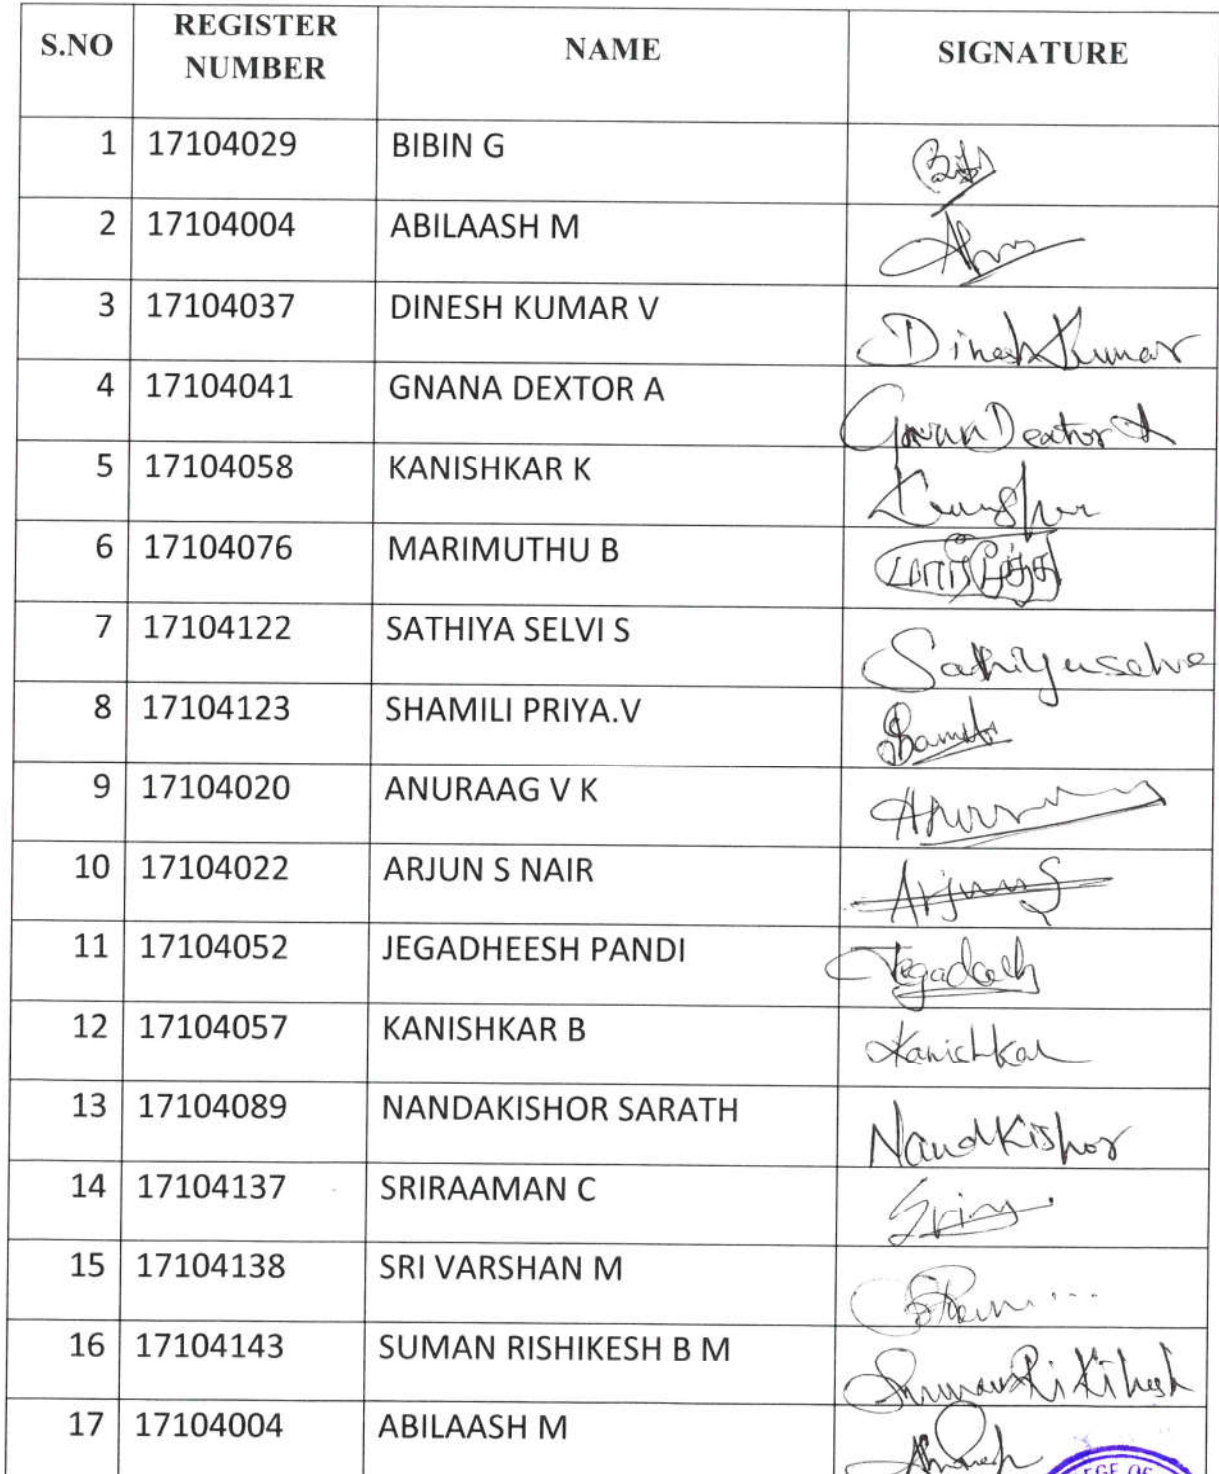 S.NO REGISTER NUMBER NAME SIGNATURE
1 17104029 BIBIN G
2 17104004 ABILAASH M
3 17104037 DINESH KUMAR V Dinesh Kumar
4 17104041 GNANA DEXTOR A Gnana Dextor A
5 17104058 KANISHKAR K
6 17104076 MARIMUTHU B மாரிமுத்து
7 17104122 SATHIYA SELVI S
8 17104123 SHAMILI PRIYA.V
9 17104020 ANURAAG V K
10 17104022 ARJUN S NAIR Arjun S
11 17104052 JEGADHEESH PANDI Jegadeesh
12 17104057 KANISHKAR B Kanishkar
13 17104089 NANDAKISHOR SARATH NandKishor
14 17104137 SRIRAAMAN C
15 17104138 SRI VARSHAN M
16 17104143 SUMAN RISHIKESH B M
17 17104004 ABILAASH M
EGE OF